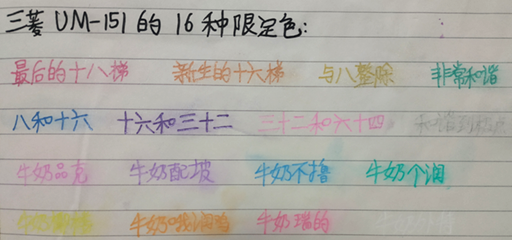 三菱 UM-151 的 16 种限定色:
最后的十八梯 新生的十六梯 与八整除 非常和谐
八和十六 十六和三十二 三十二和六十四
牛奶品克 牛奶配坡 牛奶不撸 牛奶个润
牛奶哦润鸡 牛奶瑞的